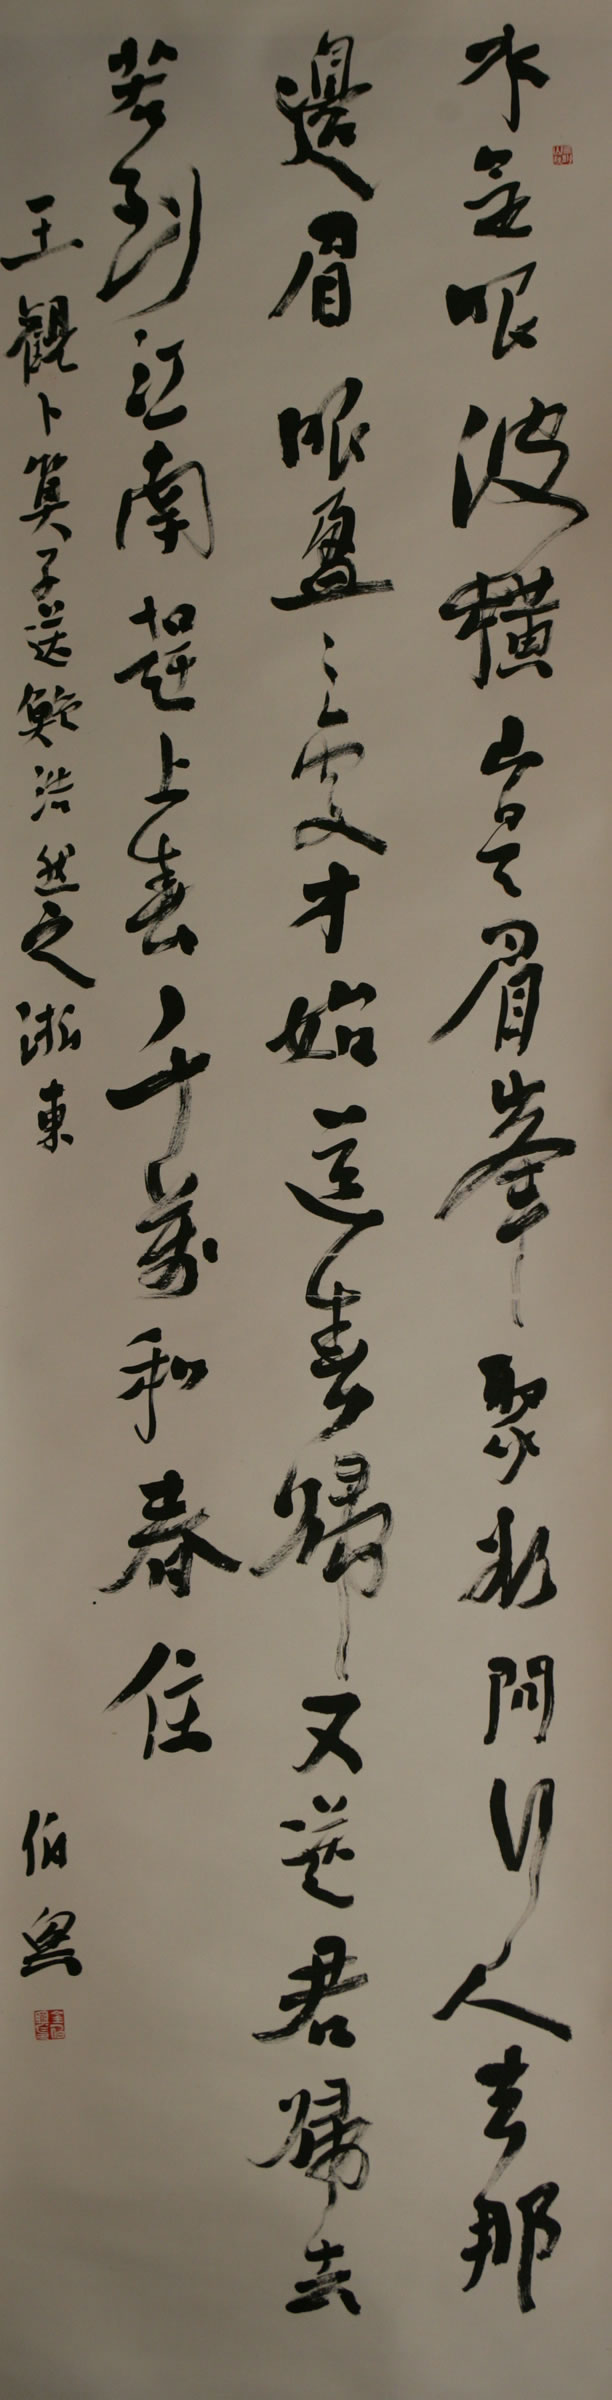 水是眼波橫山是眉峯聚欲問行人去那
邊眉眼盈〻處才始送春歸又送君歸去
若到江南趕上春千萬和春住
王觀卜算子送鮑浩然之浙東
伯